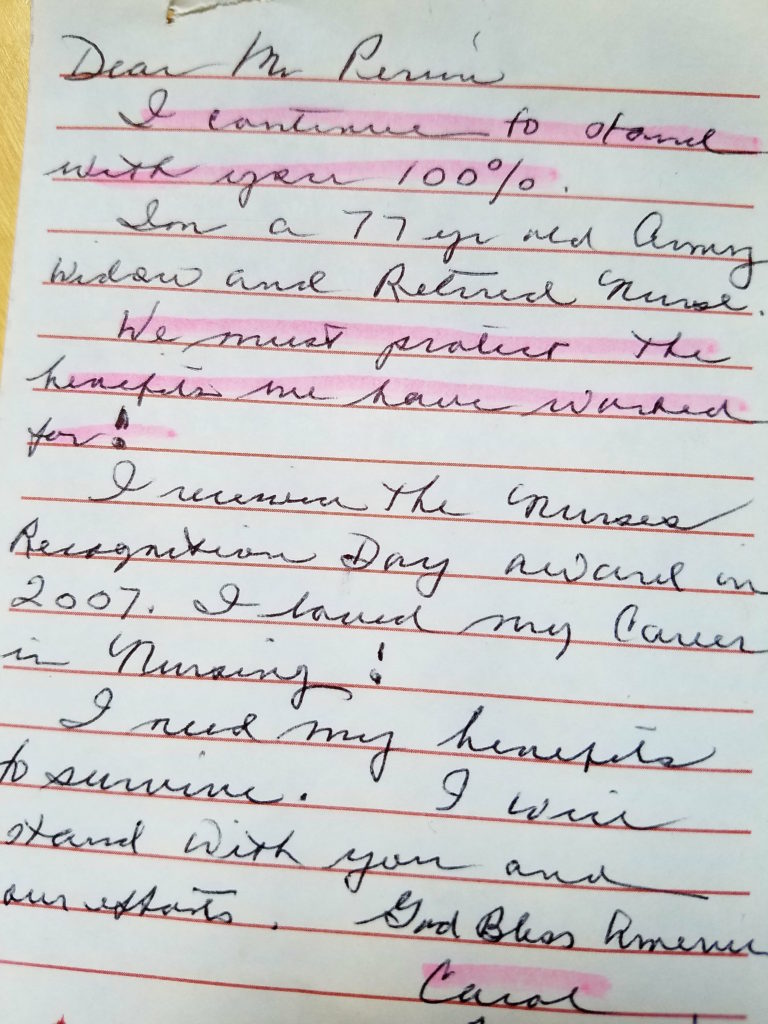 Dear Mr Perrin
I continue to stand
with you 100%.
Im a 77 yr old Army
Widow and Retired Nurse.
We must protect the
benefits we have worked
for!
I received the Nurses
Recognition Day award in
2007. I loved my Career
in Nursing!
I need my benefits
to survive. I will
stand with you and
our efforts. God Bless America
Carol